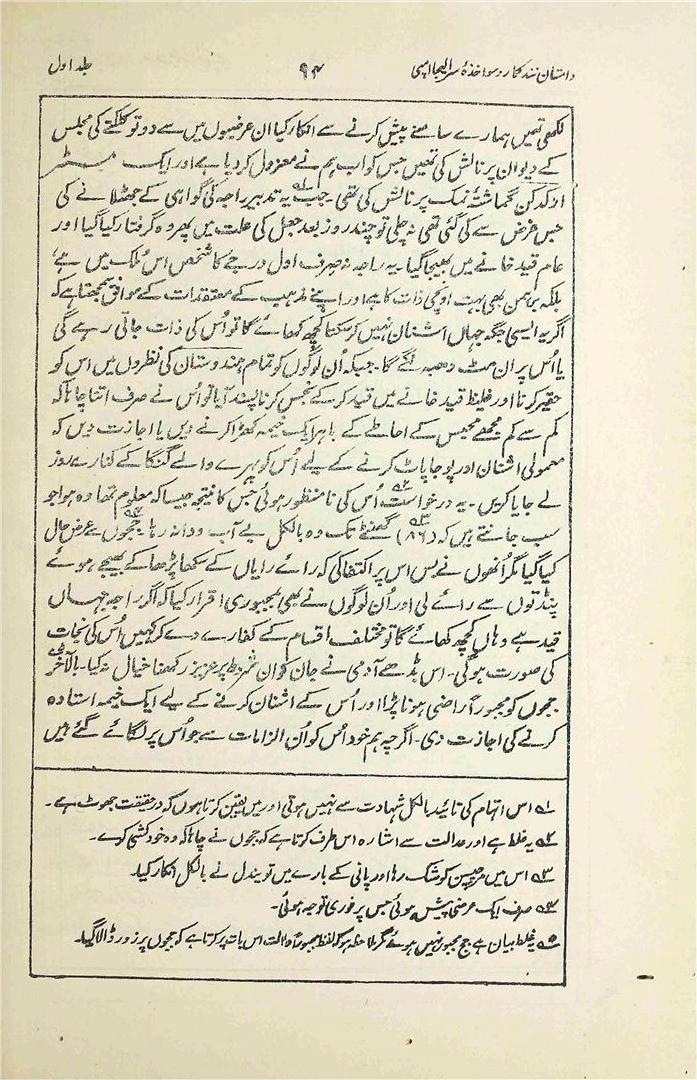 داستان نند کمار و مواخذهٔ سر الیجا امپی ۹۴ جلد اول
لکھی تھیں ہمارے سامنے پیش کرنے سے انکار کیا ان عرضیوں میں سے دو تو کلکتے کی مجلس
کے دیوان پر نالش کی تھیں جس کو اب ہم نے معزول کر دیا ہے اور ایک مسٹر
از کدکن گماشتۂ نمک پر نالش کی تھی۔ جب یہ تدبیر راجہ کی گواہی کے جھٹلانے کی
جس غرض سے کی گئی تھی نہ چلی تو چند روز بعد جعل کی علت میں پھر وہ گرفتار کیا گیا اور
عام قید خانے میں بھیجا گیا۔ یہ راجہ نہ صرف اول درجے کا شخص اس ملک میں ہے،
بلکہ برہمن بھی بہت اونچی ذات کا ہے اور اپنے مذہب کے معتقدات کے موافق سمجھتا ہے کہ
اگر یہ ایسی جگہ جہاں اشنان نہیں کر سکتا کچھ کھائے گا تو اُس کی ذات جاتی رہے گی
یا اُس پر ان مٹ دھبہ لگے گا۔ جبکہ اُن لوگوں کو تمام ہندوستان کی نظروں میں اس کو
حقیر کرنا اور غلیظ قید خانے میں قید کر کے نجس کرنا پسند آیا تو اُس نے صرف اتنا چاہا کہ
کم سے کم مجھے محبس کے احاطے کے باہر ایک خیمہ کھڑا کرنے دیں یا اجازت دیں کہ
معمولی اشنان اور پوجا پاٹ کرنے کے لیے اُس کو پہرے والے گنگا کے کنارے روز
لے جایا کریں۔ یہ درخواست۲ اُس کی نامنظور ہوئی جس کا نتیجہ جیسا کہ معلوم تھا وہ ہوا جو
سب جانتے ہیں کہ (۸۶)۳ گھنٹے تک وہ بالکل بے آب و دانہ رہا۔ ججوں۴ سے عرض حال
کیا گیا مگر اُنھوں نے بس اس پر اکتفا کی کہ رائے رایاں کے سکھا پڑھا کے بھیجے ہوئے
پنڈتوں سے رائے لی اور اُن لوگوں نے بھی بمجبوری اقرار کیا کہ اگر راجہ جہاں
قید ہے وہاں کچھ کھائے گا تو مختلف اقسام کے کفارے دے کر کہیں اُس کی نجات
کی صورت ہوگی۔ اس بڈھے آدمی نے جان کو ان شروط پر عزیز رکھنا خیال نہ کیا۔ بالآخر۵
ججوں کو مجبوراً راضی ہونا پڑا اور اُس کے اشنان کرنے کے لیے ایک خیمہ استادہ
کرنے کی اجازت دی۔ اگرچہ ہم خود اُس کو اُن الزامات سے جو اُس پر لگائے گئے ہیں
۱ اس اتہام کی تائید بالکل شہادت سے نہیں ہوتی اور میں یقین کرتا ہوں کہ درحقیقت جھوٹ ہے۔
۲ یہ غلط ہے اور عدالت سے اشارہ اس طرف کرتا ہے کہ ججوں نے چاہا کہ وہ خود کشی کرے۔
۳ اس میں مرچیسن کو شک رہا اور پانی کے بارے میں تو بندل نے بالکل انکار کیا۔
۴ صرف ایک عرضی پیش ہوئی جس پر فوری توجہ ہوئی۔
۵ یہ غلط بیان ہے جج مجبور نہیں ہوئے مگر ملاحظہ ہو کہ لفظ مجبوراً دلالت اس بات پر کرتا ہے کہ ججوں پر زور ڈالا گیا۔